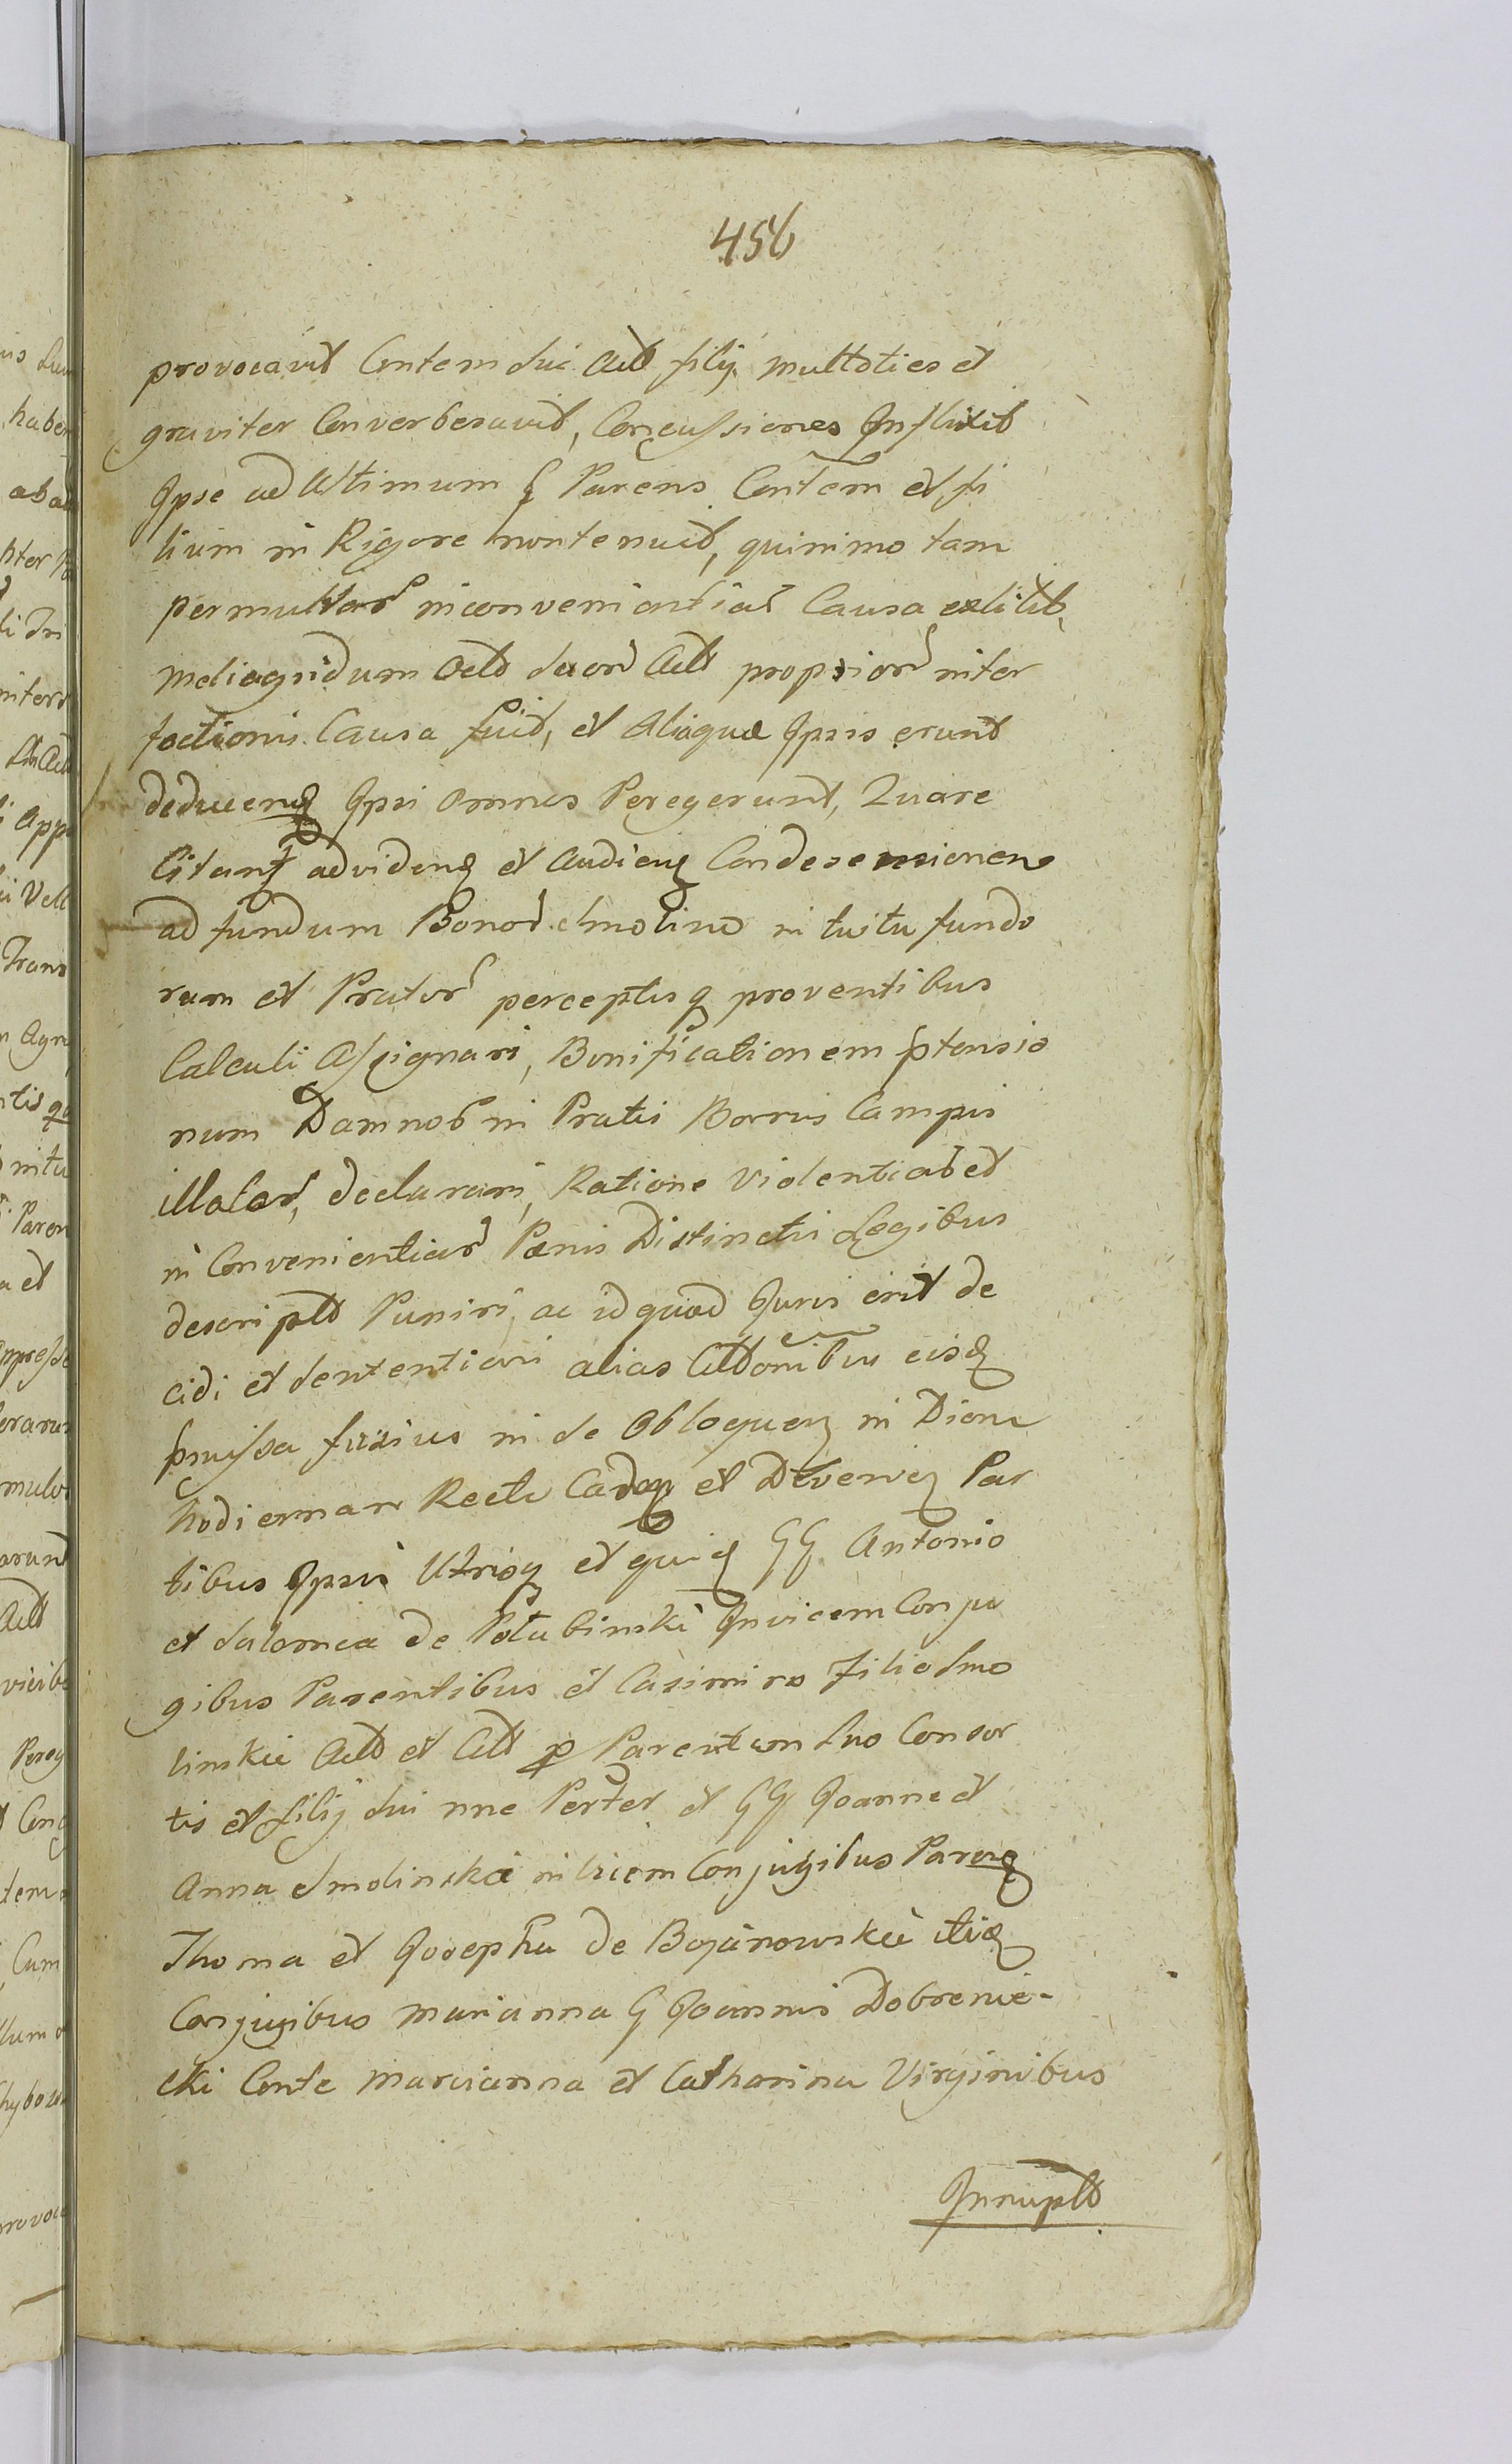 456
provocavit Contem sui Actt filij multoties et
graviter Converberavit, Concussiones Inflixit
Ipse ad Ultimum Parens Contem et fi
lium in Rigore non tenuit, quinimo tam
permultar inconvenientiar Causa extitit,
Mediaquidum Actt suor Actt proprior inter
fectionis Causa fuit, et Aliaquæ Ipsis erunt
deducenq Ipsi Omnes Peregerunt, Quare
Citant advidenq et Audienq Condescensionem
ad fundum Bonor Smolino in tuitu fundo
rum et Prator perceptisq proventibus
Calculi Assignari, Bonificationem ptensio
num Damnor in Pratis Borris Campis
illator, declarari, Ratione Violentiar et
in Convenientiar Pænis Distinctis Legibus
descriptt Puniri, ac idquod Juris erit de
cidi et sententiari alias Citt onibus eisq
pmissa fusius in de Obloquenq in Diem
hodiernam Recte Caden et Devenien Par
tibus Ipsis Utrisq et quiq GG Antonio
et Salomea de Potubinskie Invicem Conju
gibus Parentibus et Casimiro Filio Smo
linskie Actt et Citt p Parentem Suo Consor
tis et filij sui nne Perter et GG Joanne et
Anna Smolinskie inVicem Conjugibus Parenq
Thoma et Josepha de Bojanowskie itiq
Conjugibus Marianna G Joannis Dobrenie-
cki Conte Marcianna et Catharina Virginibus
Innuptt